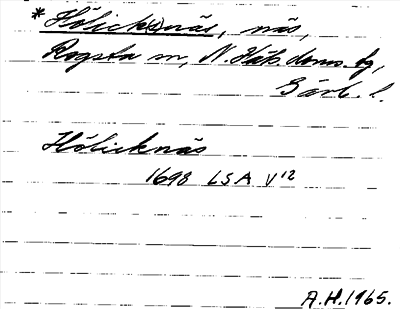 *Hölick(s)näs, näs,
Rogsta sn, N. Häls. doms. tg,
Gävb. l.
Hölicknäs
1698 LSA V12
A.H. 1965.